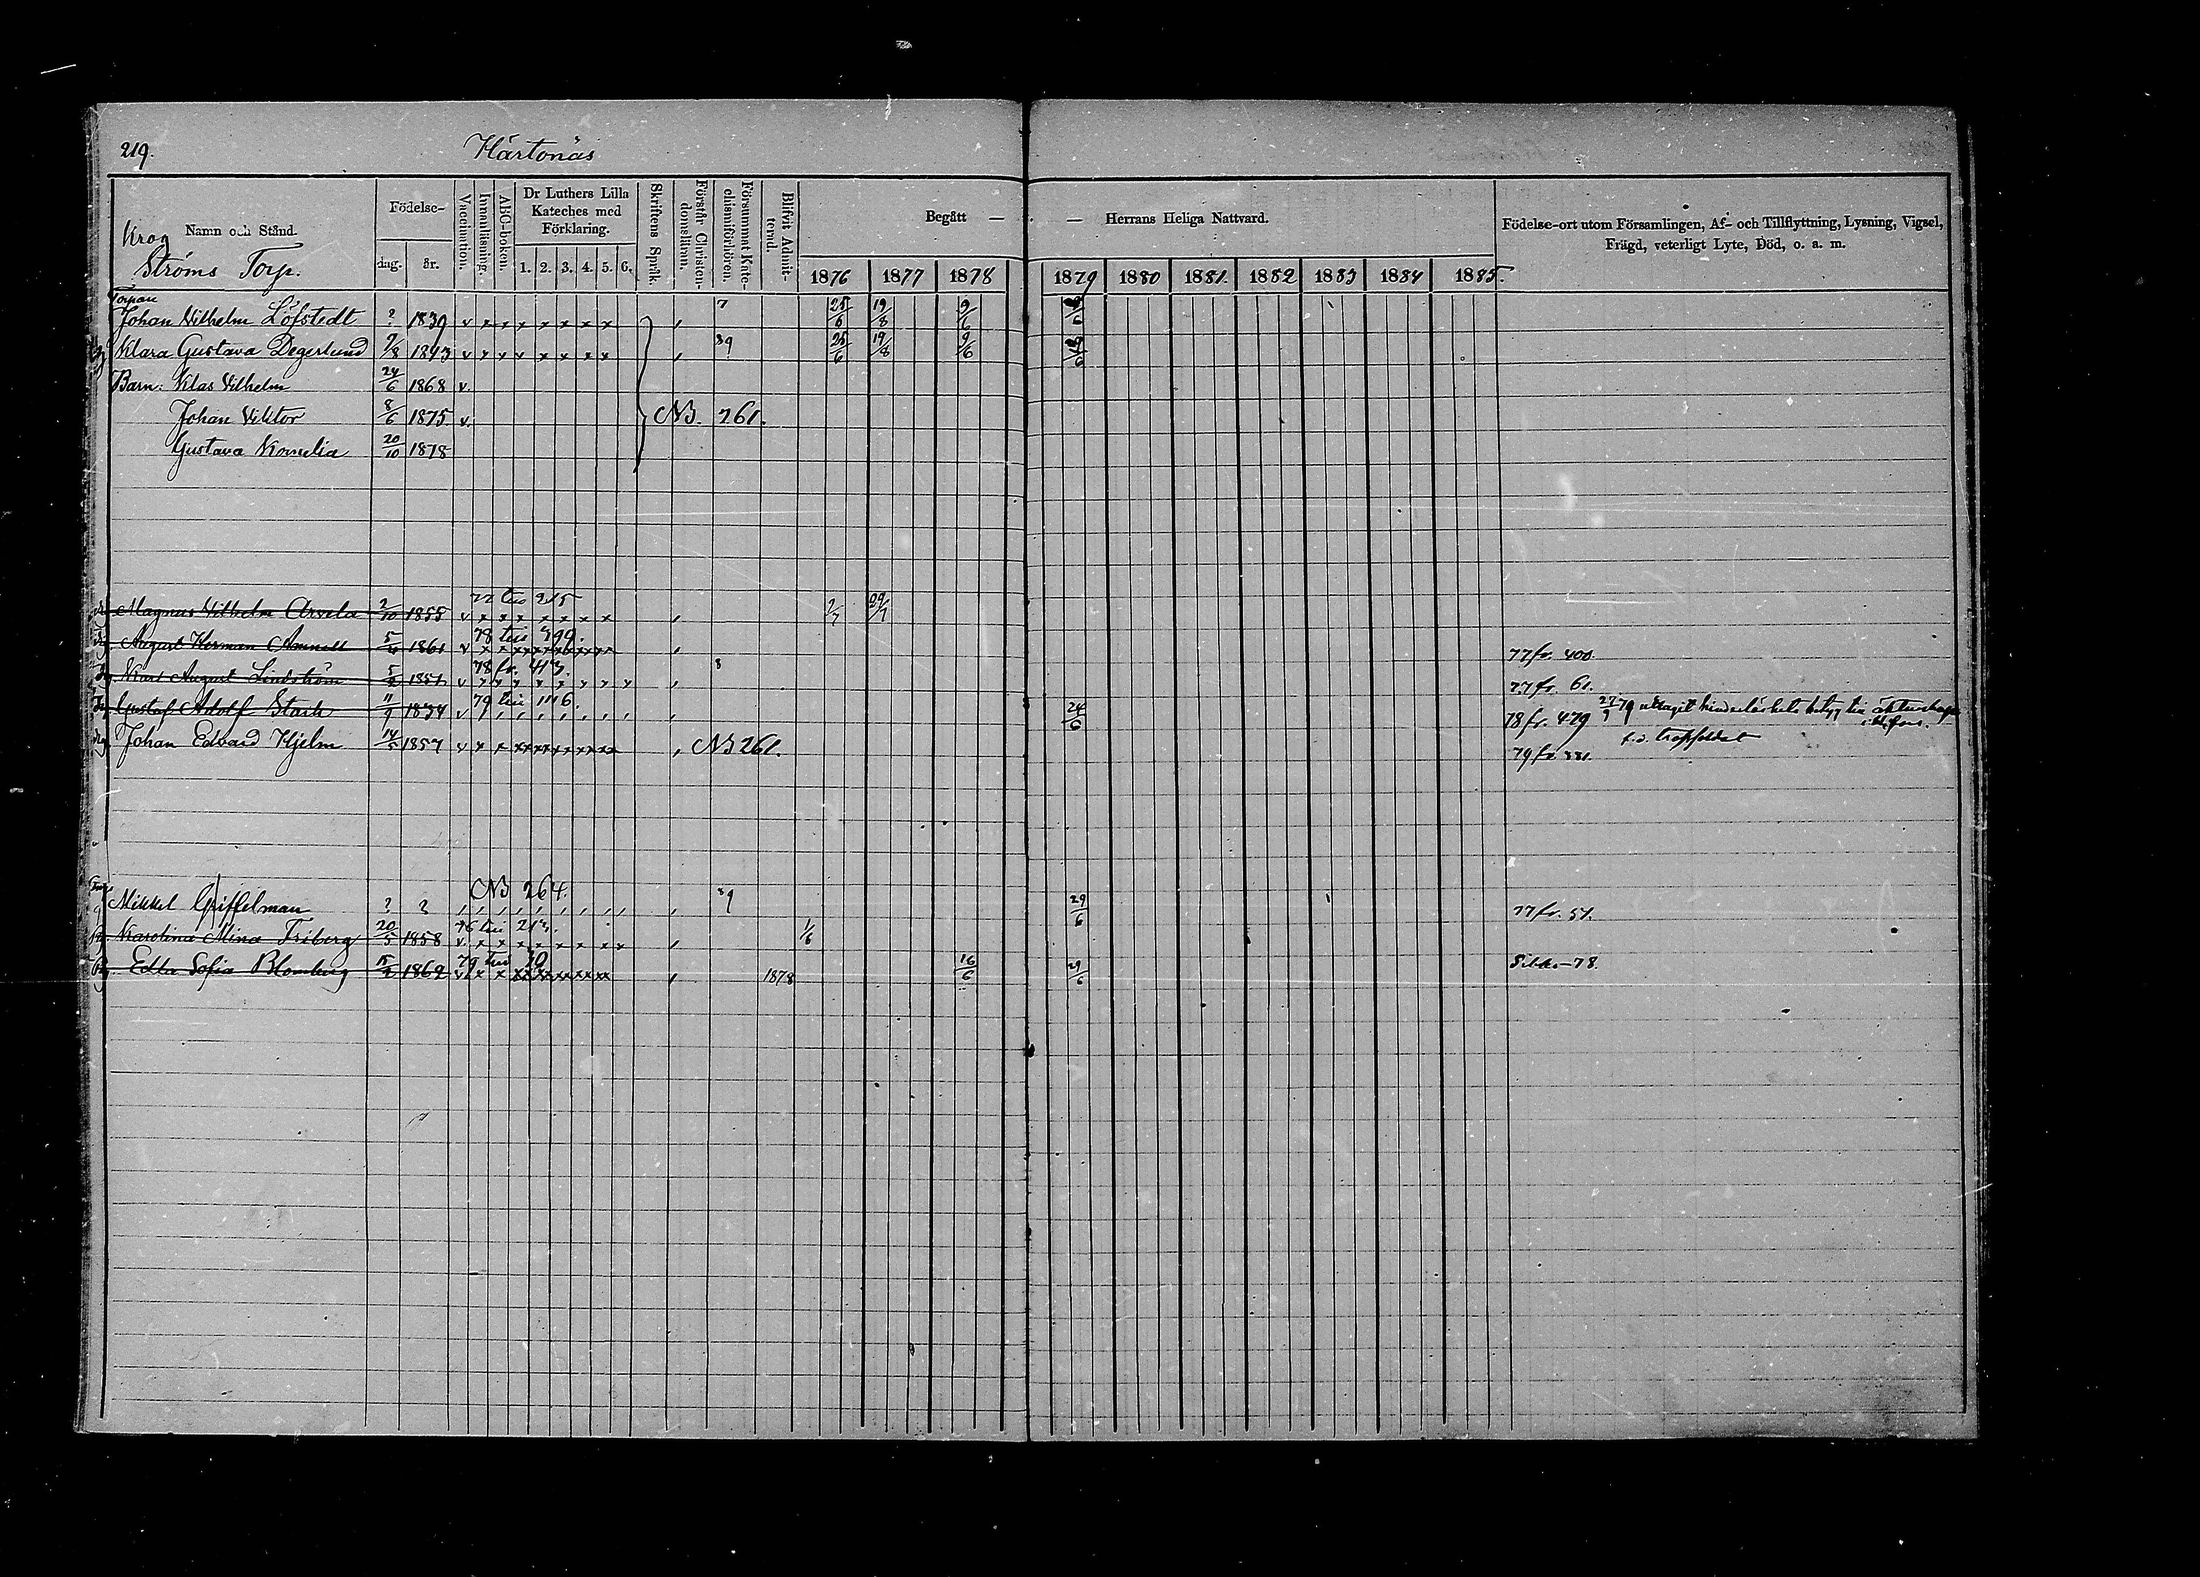 219.
Härtonäs
Namn och Stånd.
Krog
Ströms Torp.
Födelse-
dag. år.
Vaccination.
Innanläsning.
ABC-boken.
Dr Luthers Lilla
Kateches med
Förklaring.
1. 2. 3. 4. 5. 6.
Skriftens Språk.
Förstår Christen-
domslärnn.
Försummat Kate-
chismiförhören.
Blifvit Admit-
terad.
Begått — — Herrans Heliga Nattvard.
1876 1877 1878 1879 1880 1881. 1882 1883 1884 1885.
Födelse-ort utom Församlingen, Af- och Tillflyttning, Lysning, Vigsel,
Frägd, veterligt Lyte, Död, o. a. m.
Torpare
Johan Vilhelm Löfstedt ? 1839 v x x x x x x x x 7 25/6 19/8 9/6
Klara Gustava Degerlund 7/8 1843 v x x v x x x x 39 25/6 19/8 9/6
Barn: Klas Vilhelm 24/6 1868 v.
Johan Viktor 8/6 1875 v. NB. 261.
Gustava Kornelia 20/10 1878
77 till 315
Magnus Vilhelm Arvela 2/10 1855 v x x x x x x x 2/7 29/7
78 till 499.
August Herman 1861 v x x x x x x x x 77 fr. 400.
78 fr. 413.
Karl August Lindström 1851 v x x x x x x x x 8 77 fr. 61.
79 till 1116.
Gustaf Adolf Stark 11/9 1834 v 24/6 78 fr. 479 27/9 79 uttagit hinderlöshets betyg till äktenskap
i H:fors.
Johan Edvard Hjelm 14/5 1857 v x x x x x x x x NB 261. 79 fr. 881. f.d. trossoldat
NB 264.
Mikkel Griffelman ? ? 89 29/6 77 fr. 51.
76 till 213.
Karolina Mina Friberg 20/5 1858 v x x x x x x x x 1/6
79 till 20
Edla Sofia Blomberg 1862 v x x x x x x x x 1878 16/6 29/6 Sibbo -78.